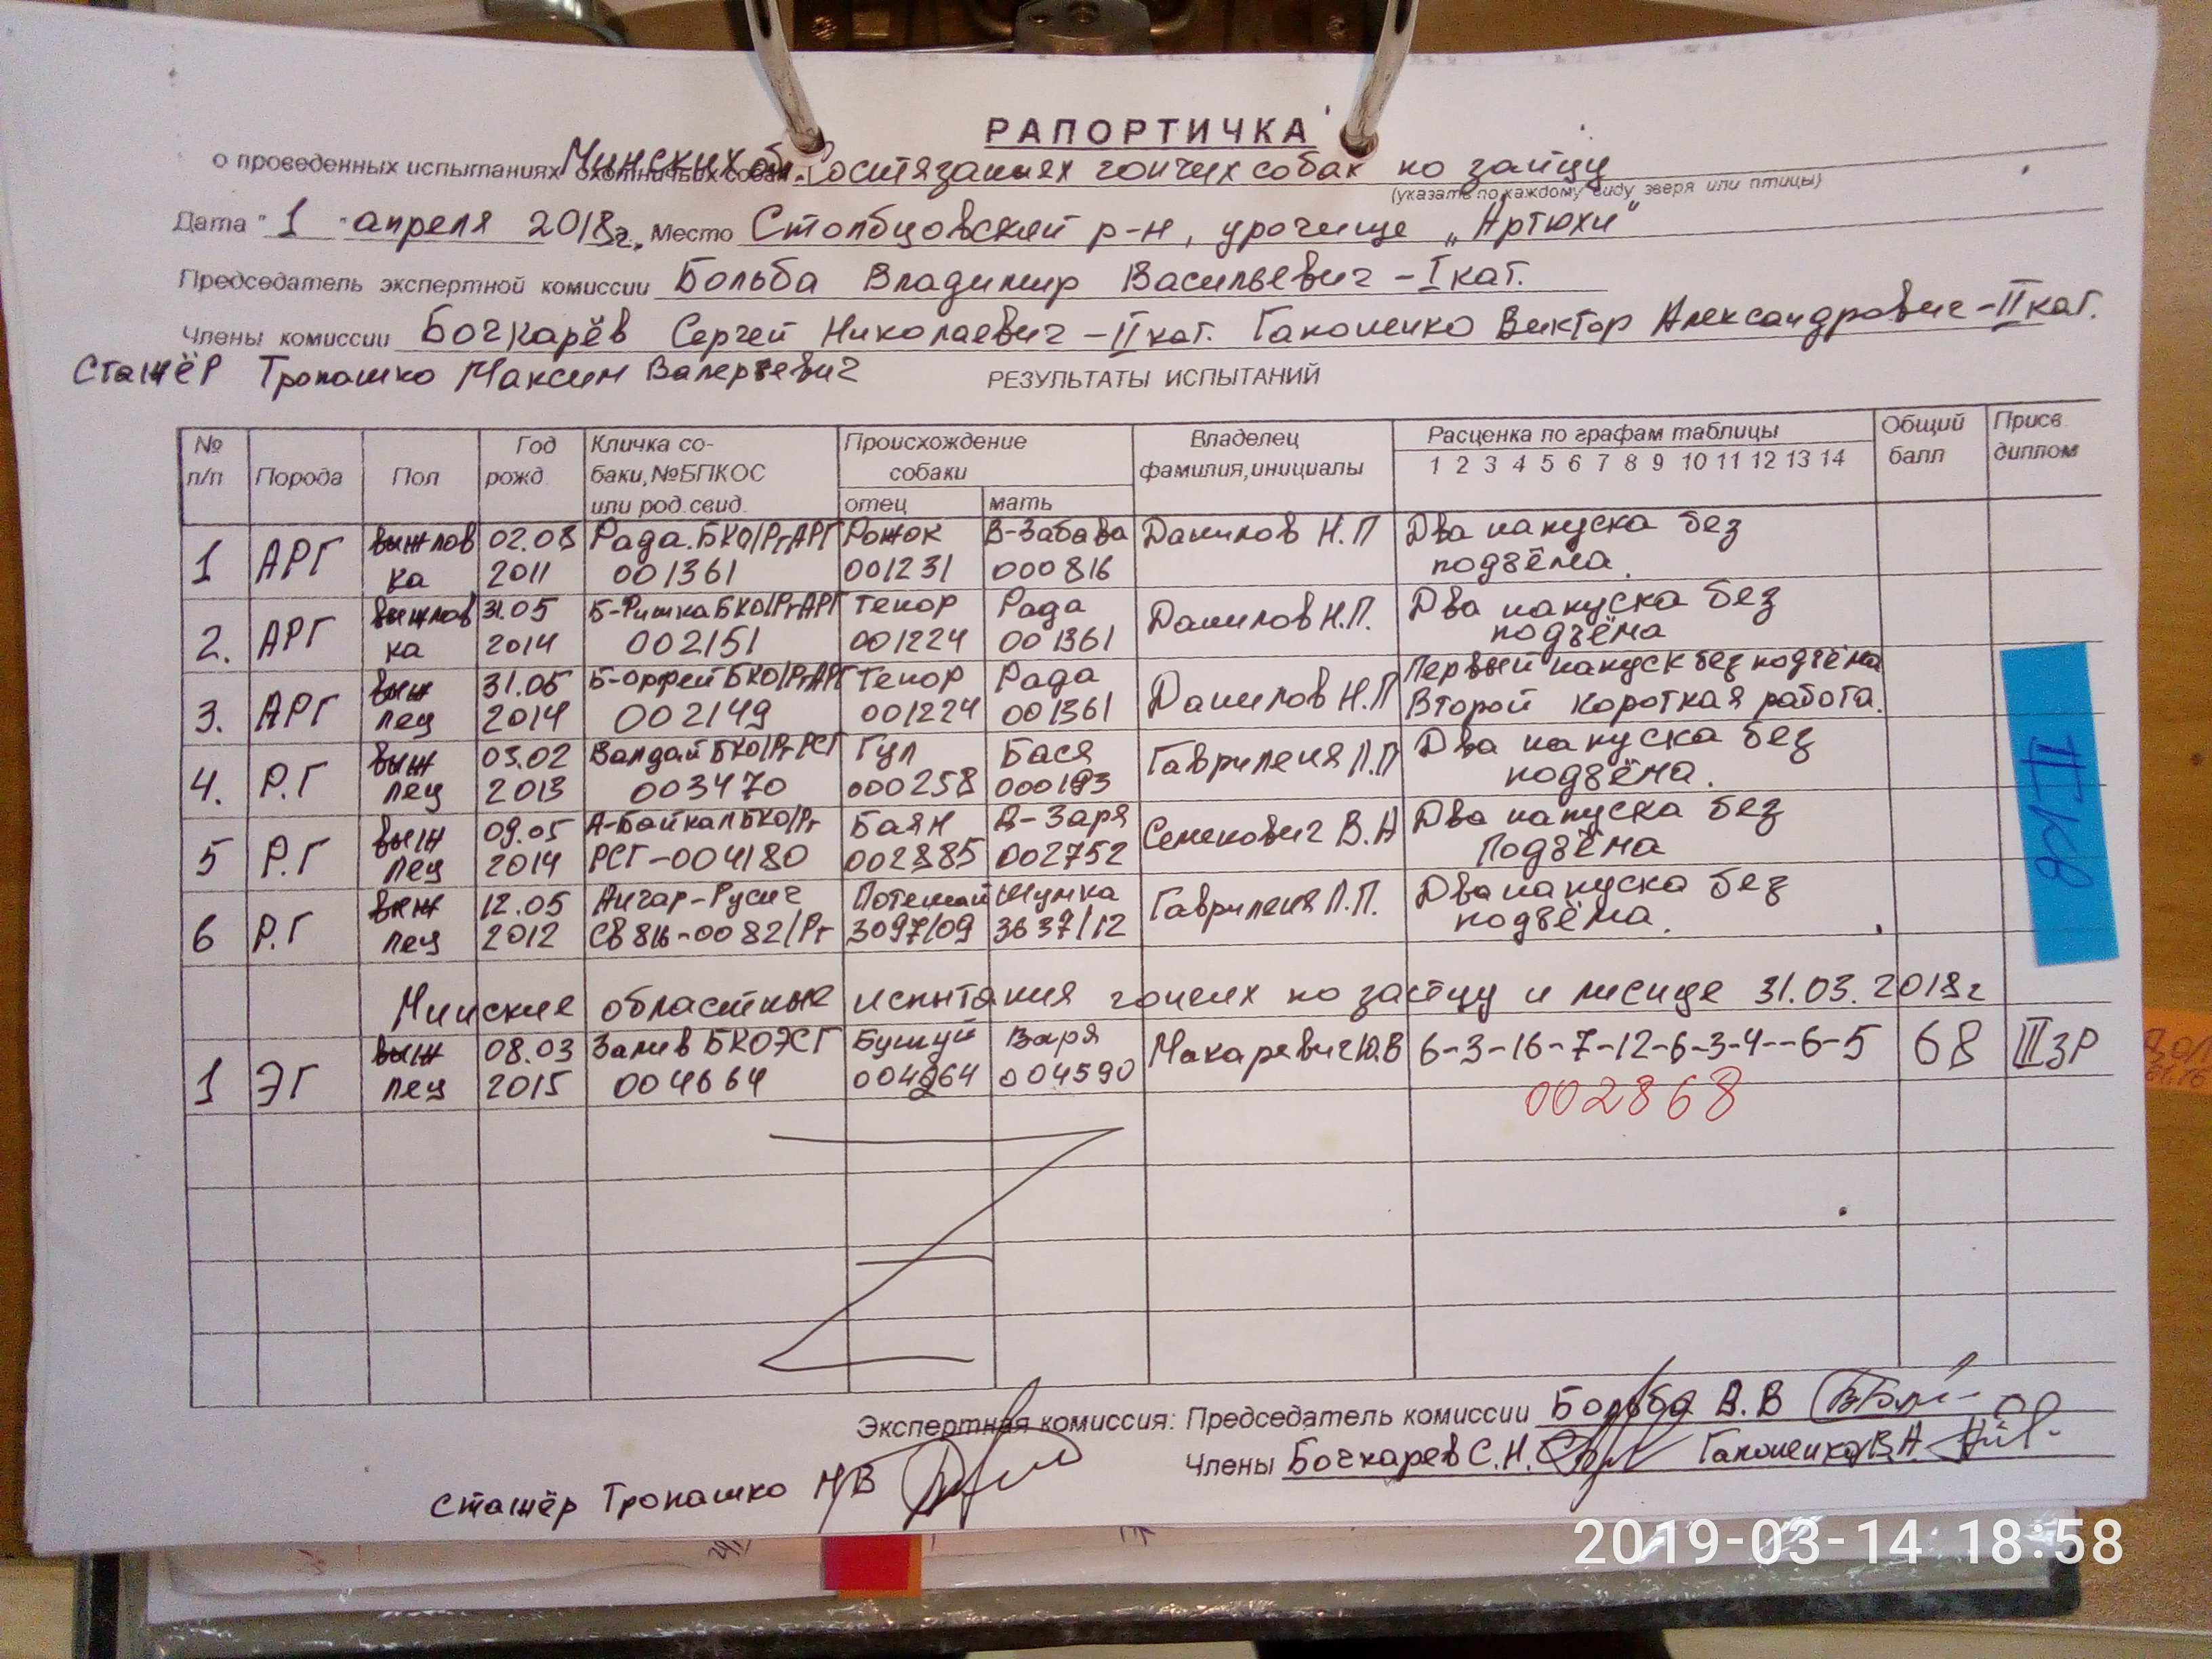 РАПОРТИЧКА
о проведенных испытаниях Минских об. Состязаниях гончих собак по зайцу
(указать по каждому виду зверя или птицы)
Дата "1" апреля 2018г. Место Столбцовский р-н, урочище „Артюхи"
Председатель экспертной комиссии Больба Владимир Васильевич - I кат.
Члены комиссии Бочкарёв Сергей Николаевич - II кат. Гапоненко Виктор Александрович - II кат.
Стажёр Тропашко Максим Валерьевич
РЕЗУЛЬТАТЫ ИСПЫТАНИЙ
№ п/п Порода Пол Год рожд Кличка собаки, №БПКОС или род.свид. Происхождение собаки отец мать Владелец фамилия,инициалы Расценка по графам таблицы 1 2 3 4 5 6 7 8 9 10 11 12 13 14 Общий балл Присв. диплом
1 АРГ выжлов 02.08 Рада.БКО/РгАРГ Рожок В-Забава Данилов Н.П Два напуска без
ка 2011 001361 001231 000816 подъёма.
2. АРГ выжлов 31.05 Б-Ришка БКО/РгАРГ Тенор Рада Данилов Н.П. Два напуска без
ка 2014 002151 001224 001361 подъёма
3. АРГ выж 31.05 Б-Орфей БКО/РгАРГ Тенор Рада Данилов Н.П Первый напуск без подъёма
лец 2014 002149 001224 001361 Второй короткая работа.
4. Р.Г выж 03.02 Валдай БКО/РгРСГ Гул Бася Гавриленя Л.П Два напуска без
лец 2013 003470 000258 000193 подъёма.
5 Р.Г выж 09.05 А-Байкал БКО/Рг Баян В-Заря Семенович В.А Два напуска без
лец 2014 РСГ-004180 002885 002752 Подъёма
6 Р.Г выж 12.05 Ангар-Русич Потешай Шумка Гавриленя Л.П. Два напуска без
лец 2012 СВ816-0082/Рг 3097/09 3637/12 подъёма.
Минские областные испытания гончих по зайцу и лисице 31.03.2018г
1 ЭГ выж 08.03 Залив БКОЭСГ Бушуй Заря Макаревич Ю.В 6-3-16-7-12-6-3-4--6-5 68 III зР
лец 2015 004664 004264 004590
002868
Экспертная комиссия: Председатель комиссии Больба В.В
Члены Бочкарев С.Н. Гапоненко В.А.
Стажёр Тропашко М.В
2019-03-14 18:58